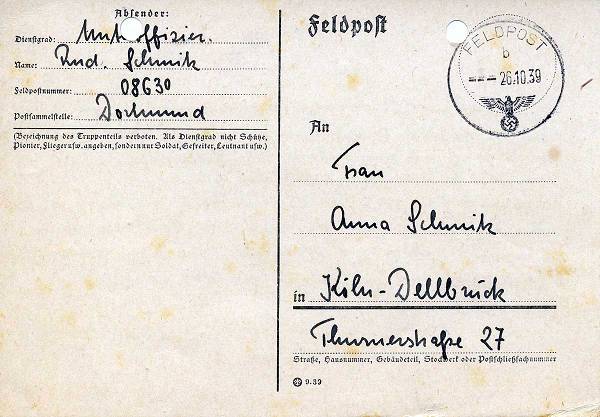 Absender:
Dienstgrad: Unteroffizier.
Name: Rud. Schmik
Feldpostnummer: 08630
Postsammelstelle: Dortmund
(Bezeichnung des Truppenteils verboten. Als Dienstgrad nicht Schütze,
Pionier, Flieger usw. angeben, sondern nur Soldat, Gefreiter, Leutnant usw.).
Feldpost
FELDPOST
b
--- 26.10.39
An
Frau
Anna Schmik
in Köln-Dellbrück
Thurnerstraße 27
Straße, Hausnummer, Gebäudeteil, Stockwerk oder Postschließfachnummer
9.39